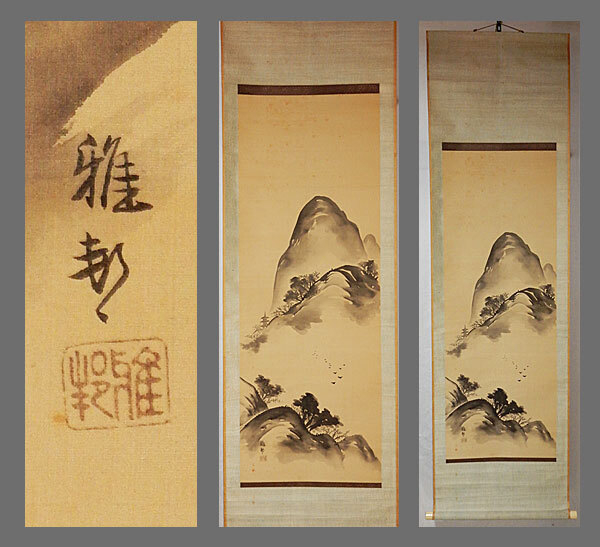 雅邦
雅邦